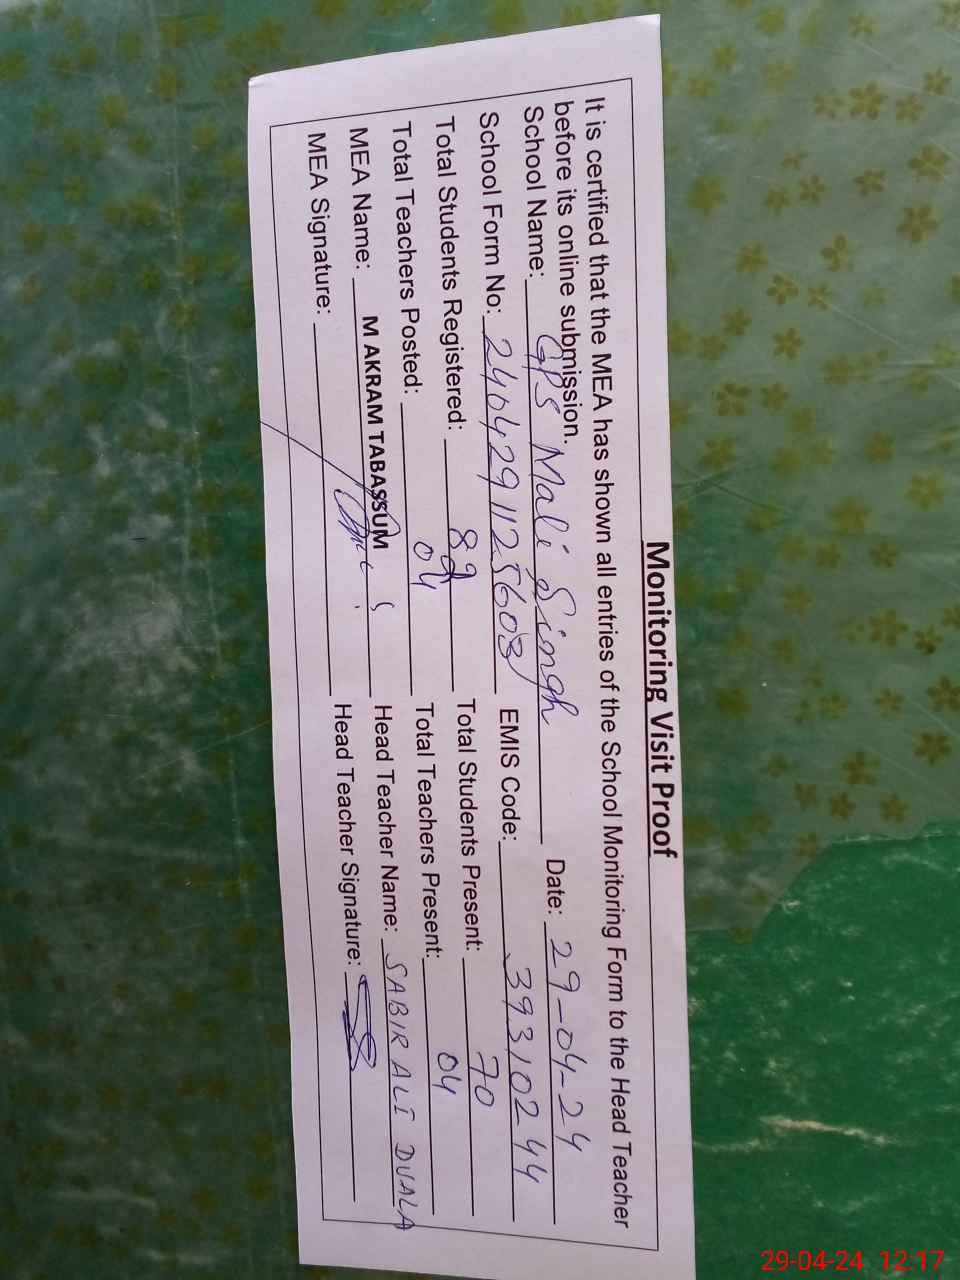 Monitoring Visit Proof
It is certified that the MEA has shown all entries of the School Monitoring Form to the Head Teacher
before its online submission.
School Name: GPS Mali Singh Date: 29-04-24
School Form No: 2404291125603 EMIS Code: 39310244
Total Students Registered: 82 Total Students Present: 70
Total Teachers Posted: 04 Total Teachers Present: 04
MEA Name: M AKRAM TABASSUM Head Teacher Name: SABIR ALI DUALA
MEA Signature: Head Teacher Signature:
29-04-24 12:17